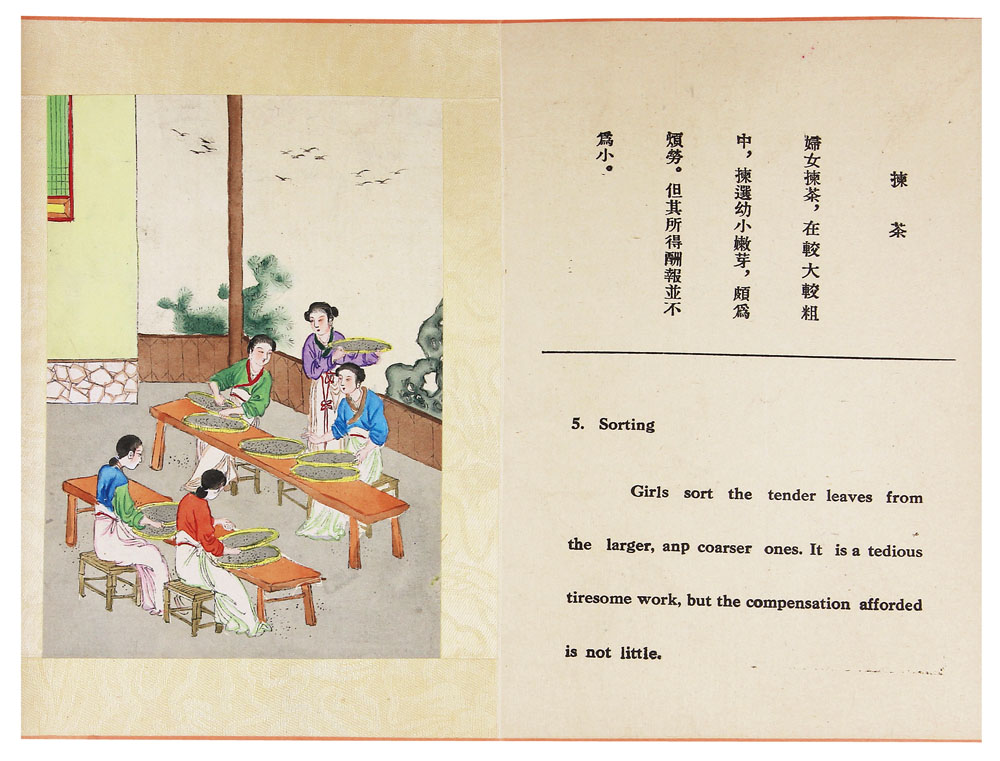 揀茶
婦女揀茶，在較大較粗
中，揀選幼小嫩芽，頗爲
煩勞。但其所得酬報並不
爲小。
5. Sorting
Girls sort the tender leaves from
the larger, anp coarser ones. It is a tedious
tiresome work, but the compensation afforded
is not little.